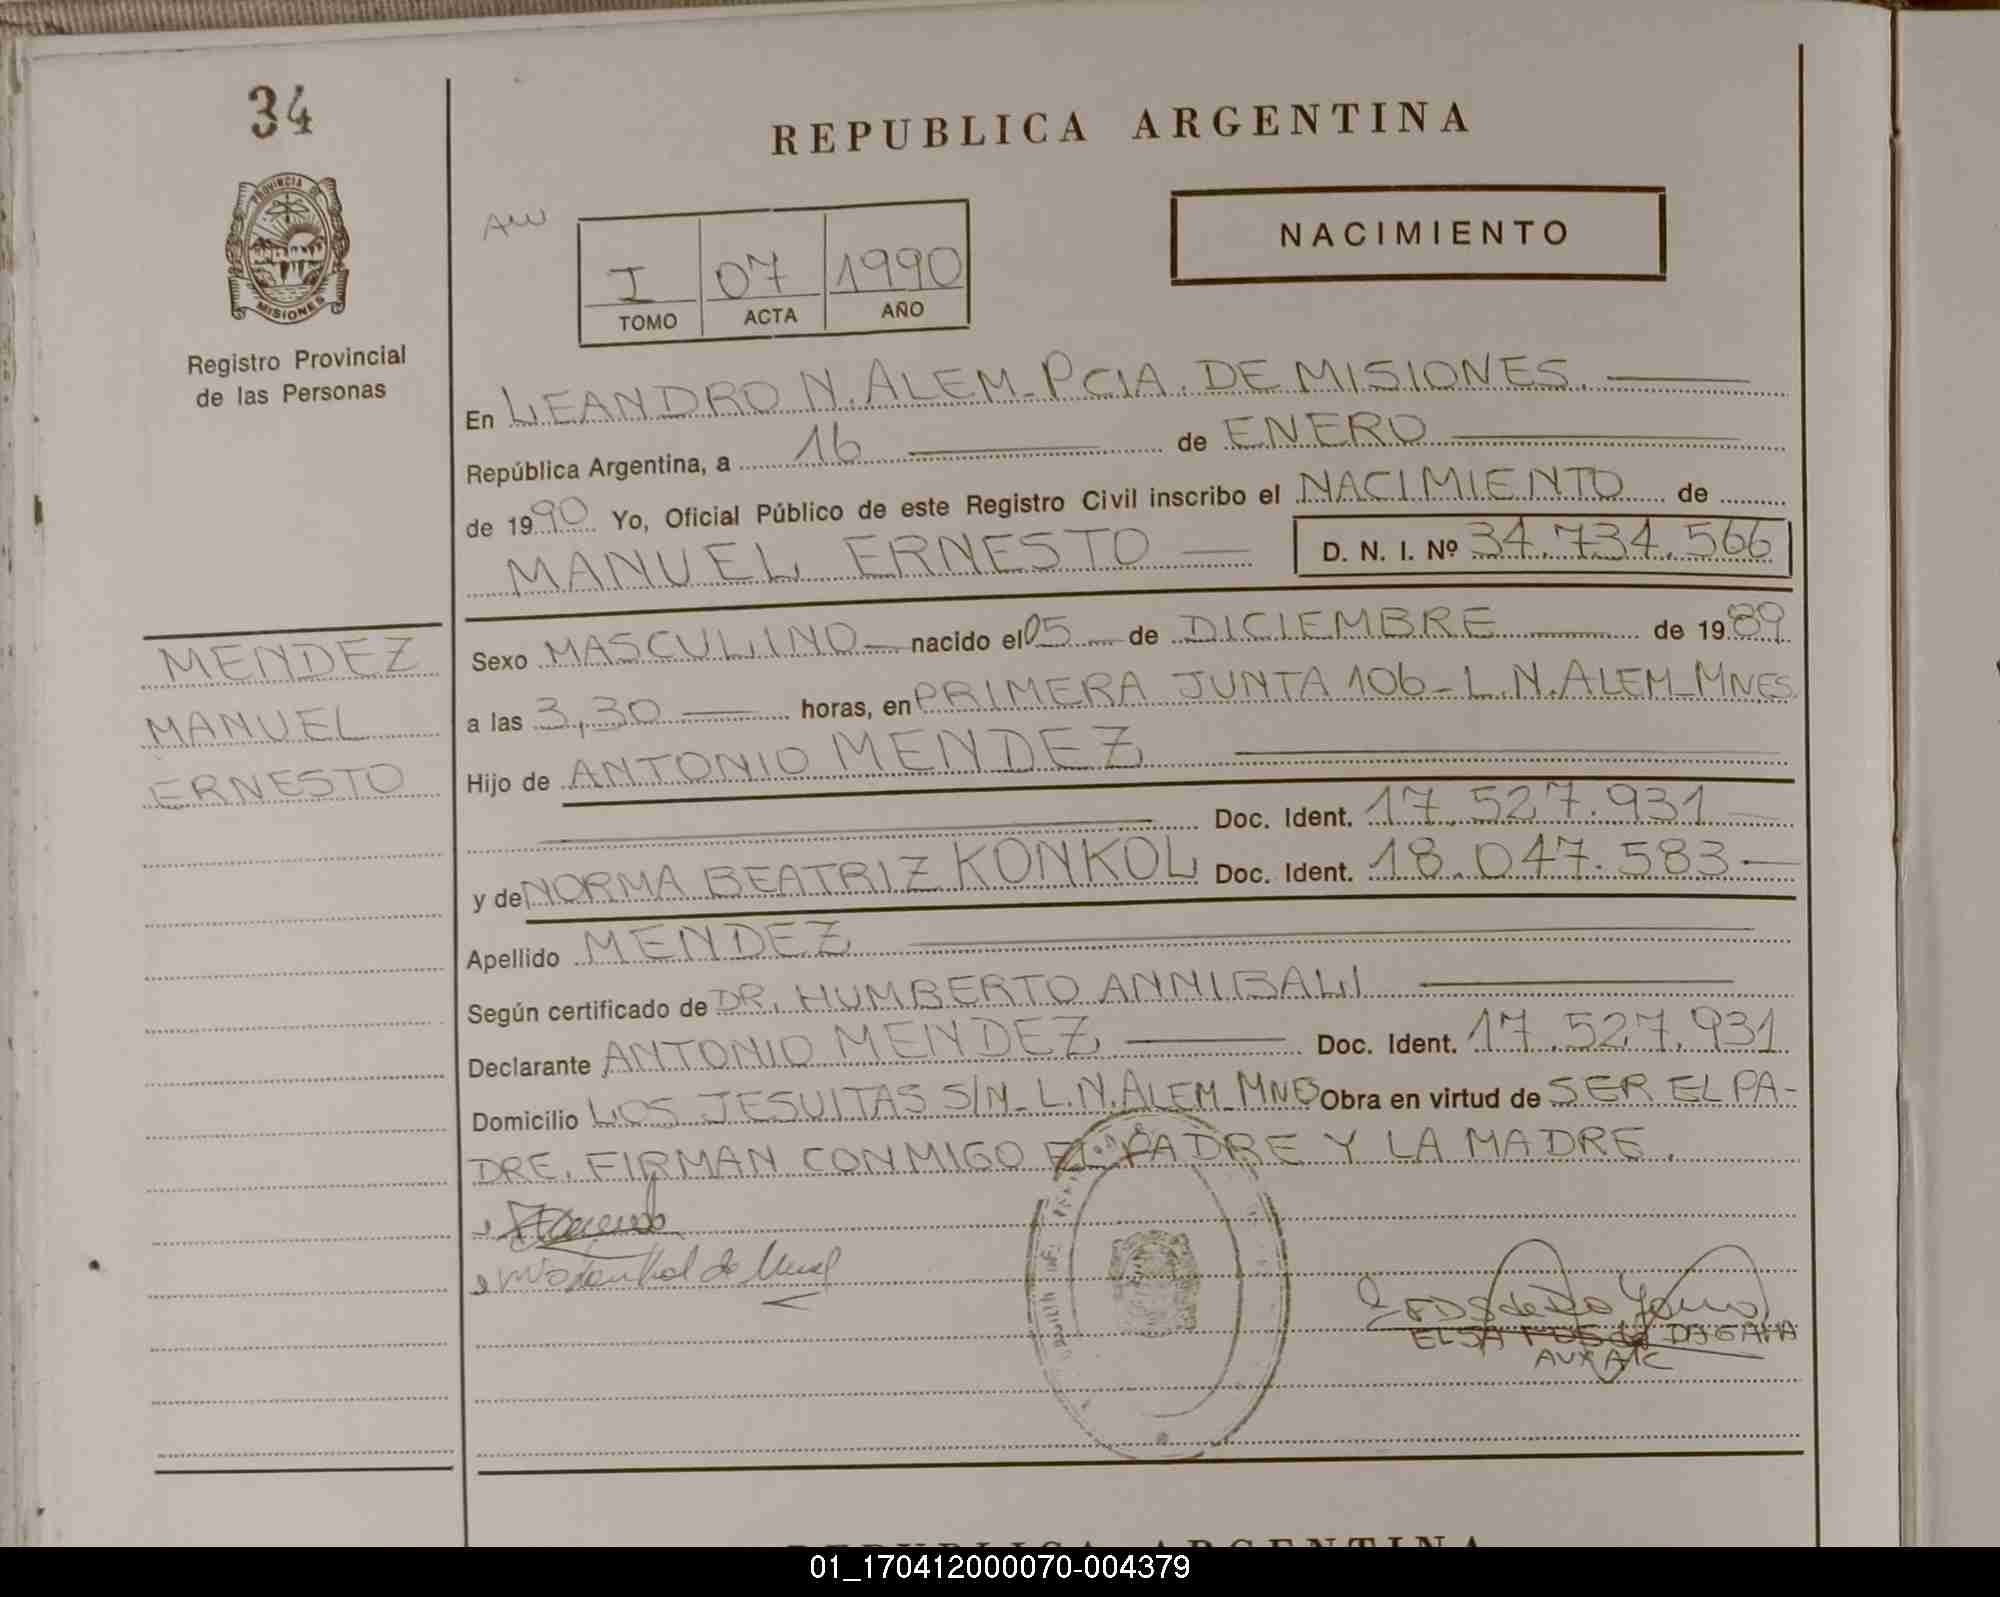 34
REPUBLICA ARGENTINA
PROVINCIA DE
MISIONES
Registro Provincial
de las Personas
NACIMIENTO
I 07 1990
TOMO ACTA AÑO
En LEANDRO N. ALEM_PCIA. DE MISIONES.
República Argentina, a 16 de ENERO
de 1990 Yo, Oficial Público de este Registro Civil inscribo el NACIMIENTO de
MANUEL ERNESTO D. N. I. Nº 34.734.566
MENDEZ
MANUEL
ERNESTO
Sexo MASCULINO nacido el 05 de DICIEMBRE de 1989
a las 3,30 horas, en PRIMERA JUNTA 106_L.N.ALEM_MNES
Hijo de ANTONIO MENDEZ
Doc. Ident. 17.527.931
y de NORMA BEATRIZ KONKOL Doc. Ident. 18.047.583
Apellido MENDEZ
Según certificado de DR. HUMBERTO ANNIBALI
Declarante ANTONIO MENDEZ Doc. Ident. 17.527.931
Domicilio LOS JESUITAS S/N_L.N.ALEM_ Obra en virtud de SER EL PA-
DRE. FIRMAN CONMIGO EL PADRE Y LA MADRE.
ELSA DAGAMA
REPUBLICA ARGENTINA
01_170412000070-004379